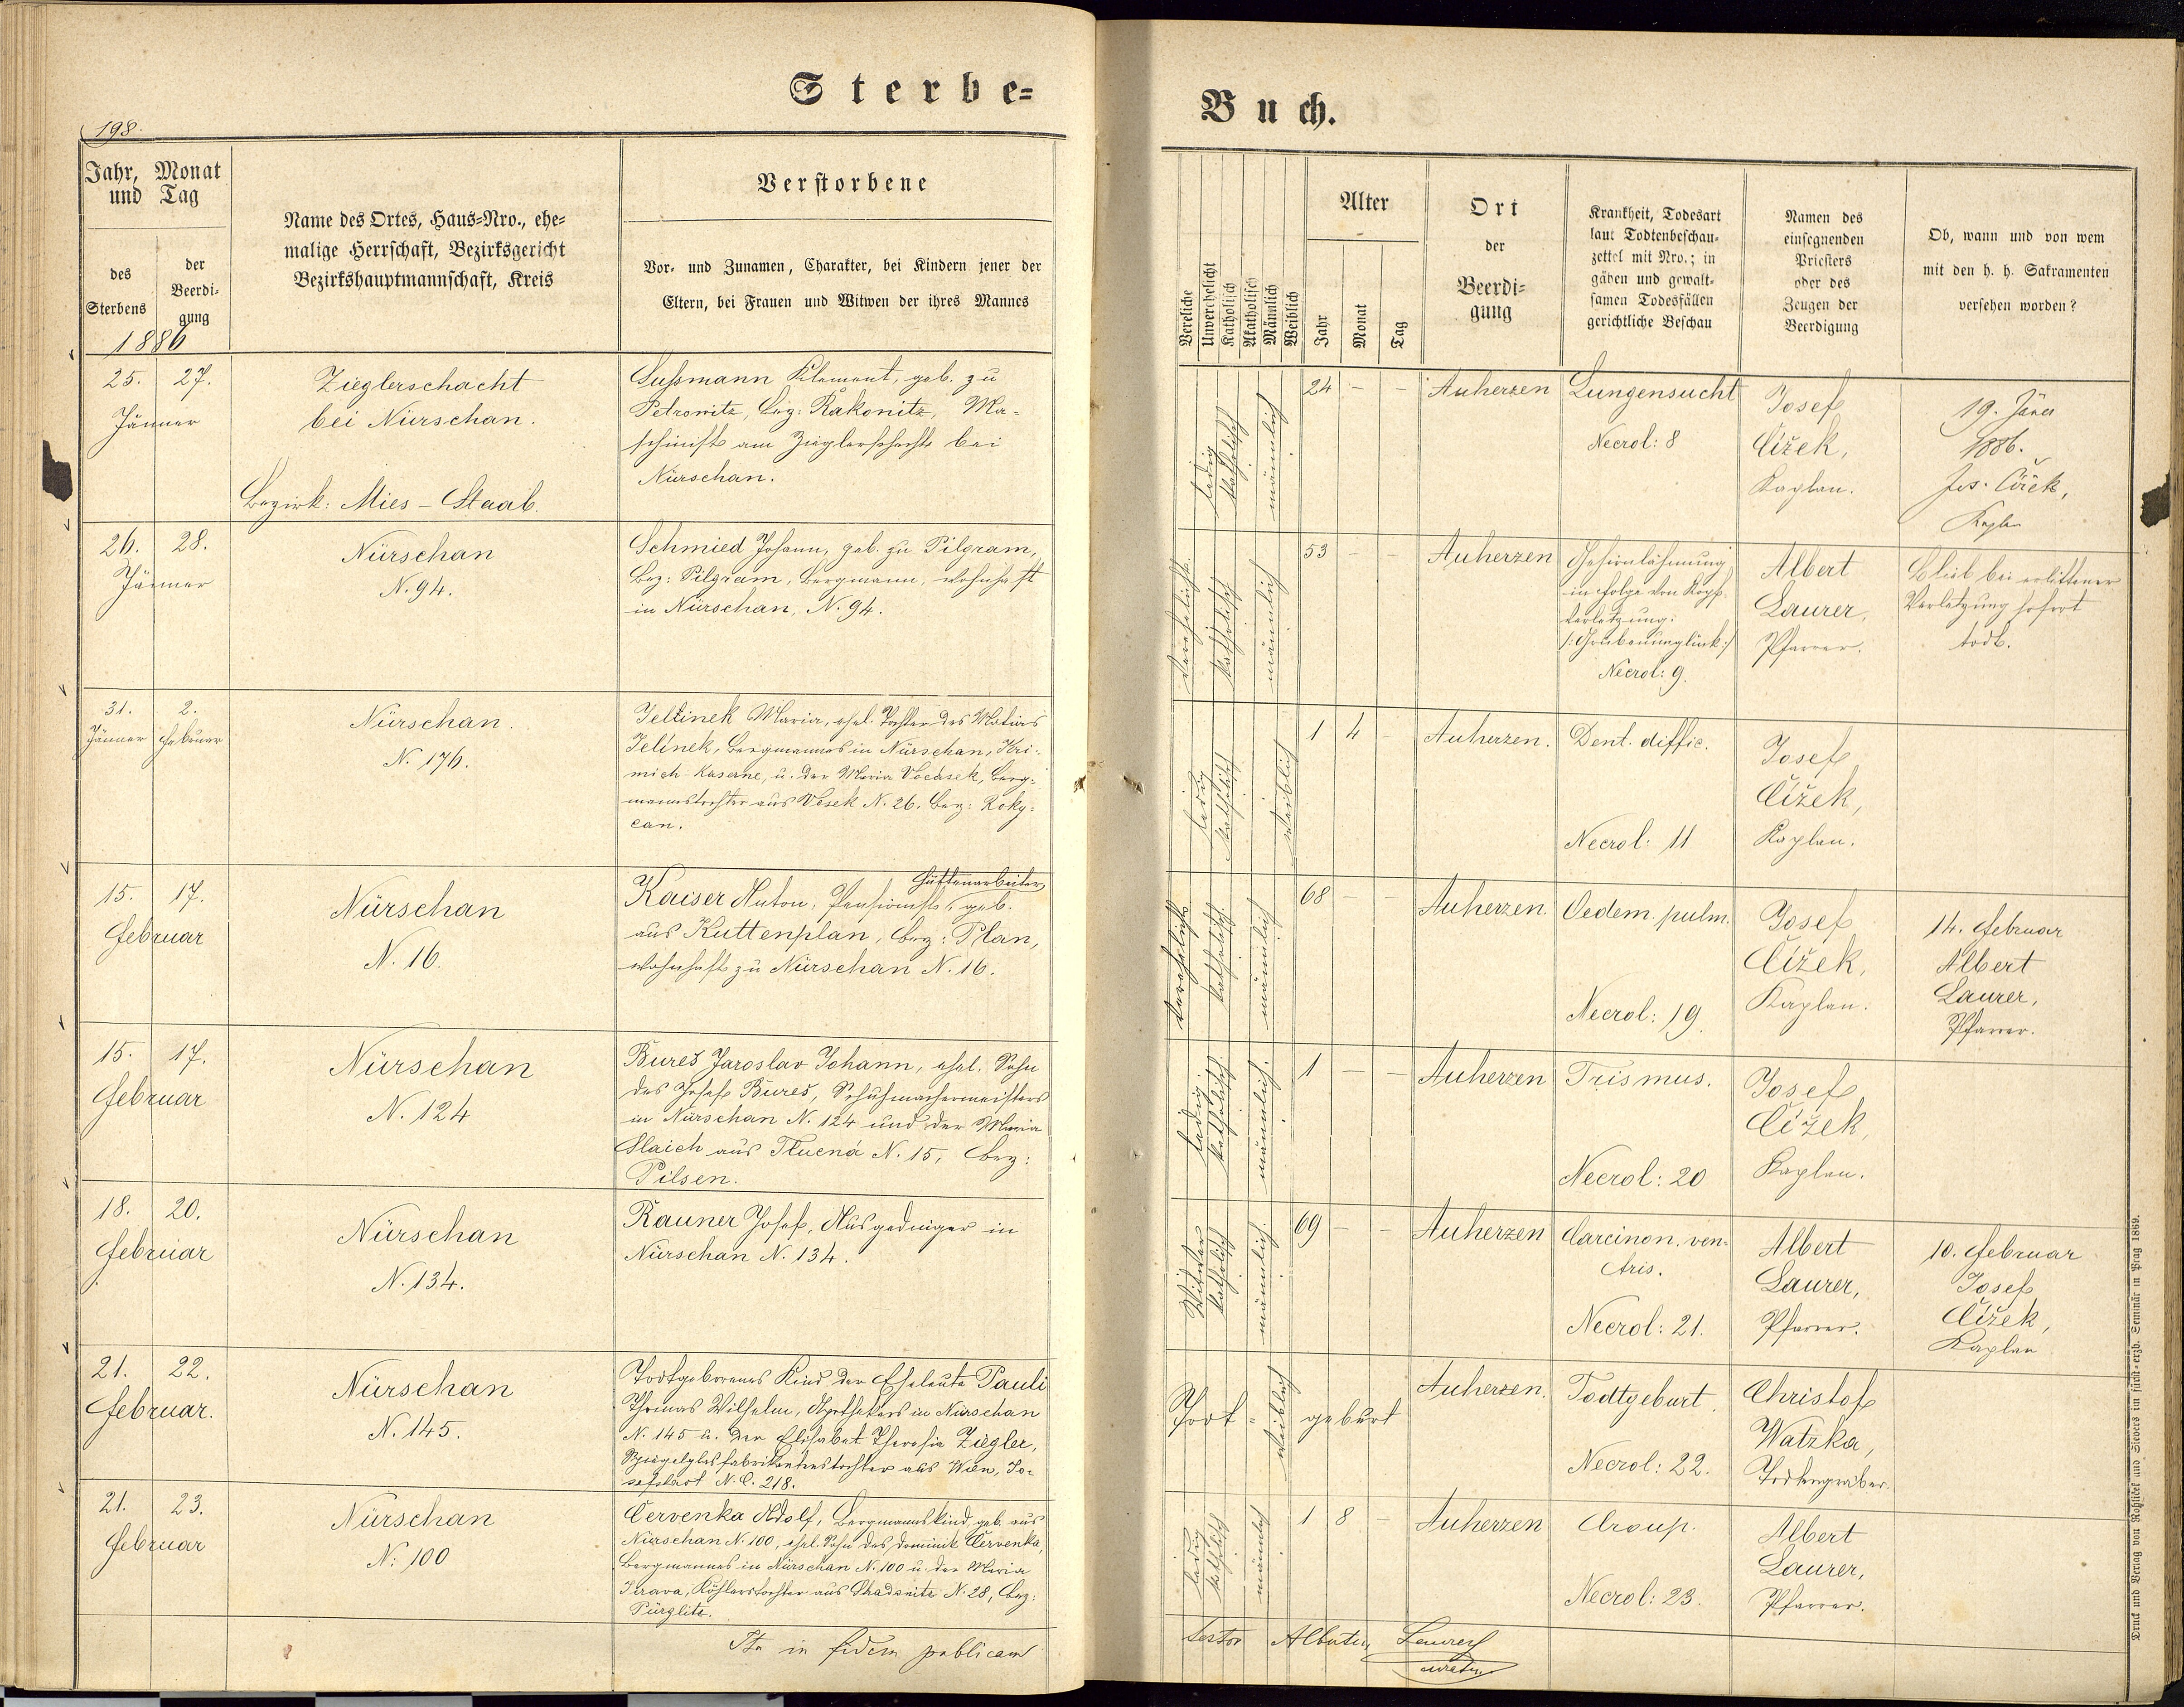 Sterbe=
198.
Jahr, Monat
und Tag
des
Sterbens
der
Beerdi=
gung
1886
Name des Ortes, Haus=Nro., ehe=
malige Herrschaft, Bezirksgericht
Bezirkshauptmannschaft, Kreis
Verstorbene
Vor= und Zunamen, Charakter, bei Kindern jener der
Eltern, bei Frauen und Witwen der ihres Mannes
25. 27.
Jänner
Zieglerschacht
bei Nürschan.
Bezirk: Mies – Staab.
Sußmann Klement, geb. zu
Petrowitz, Bez: Rakonitz, Ma=
schinist am Zieglerschacht bei
Nürschan.
26. 28.
Jänner
Nürschan
N. 94.
Schmied Johann, geb. zu Pilgram,
Bez: Pilgram, Bergmann, wohnhaft
in Nürschan, N. 94.
31. 2.
Jänner Februar
Nürschan.
N. 176.
Jellinek Maria, ehel. Tochter des Matias
Jelinek, Bergmannes in Nürschan, Kri=
mich-Kaserne, u. der Maria Vocásek, Berg=
mannstochter aus Vosek N. 26. Bez: Roky=
can.
15. 17.
Februar
Nürschan
N. 16.
Hüttenarbeiter
Kaiser Anton, Pensionist, geb.
aus Kuttenplan, Bez: Plan,
wohnhaft zu Nürschan N. 16.
15. 17.
Februar
Nürschan
N. 124
Bureš Jaroslav Johann, ehel. Sohn
des Josef Bureš, Schuhmachermeisters
in Nürschan N. 124 und der Maria
Slaich aus Tlučná N. 15, Bez:
Pilsen.
18. 20.
Februar
Nürschan
N. 134.
Rauner Josef, Ausgedinger in
Nürschan N. 134.
21. 22.
Februar.
Nürschan
N. 145.
Todtgeborenes Kind der Eheleute Pauli
Thomas Wilhelm, Apothekers in Nürschan
N. 145 u. der Elisabet Theresia Ziegler,
Spiegelglasfabrikantenstochter aus Wien, Jo=
sefstadt N. C. 218.
21. 23.
Februar
Nürschan
N: 100
Červenka Adolf, Bergmannskind, geb. aus
Nürschan N. 100, ehel. Sohn des Dominik Červenka,
Bergmannes in Nürschan N. 100 u. der Maria
Köhlerstochter aus N. 28, Bez:
Pürglitz.
Ita in fidem publicam
Buch.
Vereliche
Unverehelicht
Katholisch
Akatholisch
Männlich
Weiblich
Alter
Jahr
Monat
Tag
Ort
der
Beerdi=
gung
Krankheit, Todesart
laut Todtenbeschau=
zettel mit Nro.; in
gähen und gewalt=
samen Todesfällen
gerichtliche Beschau
Namen des
einsegnenden
Priesters
oder des
Zeugen der
Beerdigung
Ob, wann und von wem
mit den h. h. Sakramenten
versehen worden?
ledig
katholisch
männlich
24 – –
Auherzen
Lungensucht
Necrol: 8
Josef
Čížek,
Kaplan.
19. Jäner
1886.
Jos. Čížek,
Kaplan
verehelicht.
katholisch
männlich
53 – –
Auherzen
Gehirnlähmung
in Folge von Kopf=
verletzung.
/: Grubenunglück :/
Necrol: 9.
Albert
Laurer,
Pfarrer.
Blieb bei erlittener
Verletzung sofort
todt.
ledig
katholisch
weiblich
1 4 –
Auherzen.
Dent. diffic.
Necrol: 11
Josef
Čížek,
Kaplan.
verehelicht
katholisch
männlich
68 – –
Auherzen.
Oedem. pulm.
Necrol: 19.
Josef
Čížek,
Kaplan.
14. Februar
Albert
Laurer,
Pfarrer.
ledig.
katholisch.
männlich.
1 – –
Auherzen
Trismus.
Necrol: 20
Josef
Čížek,
Kaplan.
Witwer
katholisch
männlich.
69 – –
Auherzen
Carcinon. ven=
tris.
Necrol: 21.
Albert
Laurer,
Pfarrer.
10. Februar
Josef
Čížek,
Kaplan
Todt=
weiblich
geburt
Auherzen.
Todtgeburt.
Necrol: 22.
Christof
Watzka,
Todtengräber.
ledig
katholisch
männlich
1 8 –
Auherzen
Croup.
Necrol: 23.
Albert
Laurer,
Pfarrer.
testor Albertus Laurer
curatus
Druck und Verlag von Rohliček und Sievers im fürst=erzb. Seminär in Prag 1869.